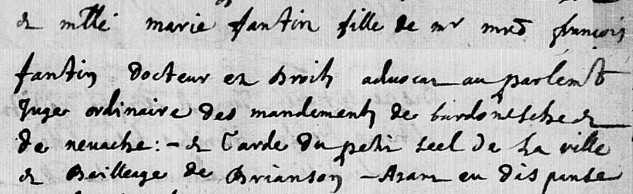 & mlle marie fantin fille de mr mre françois
fantin docteur en droitz advocat au parlemt
Juge ordinaire des mandements de bardonesche &
de nevache : - & Garde du petit seel de la ville
& Bailleage de Brianson - Ayant eu dispance